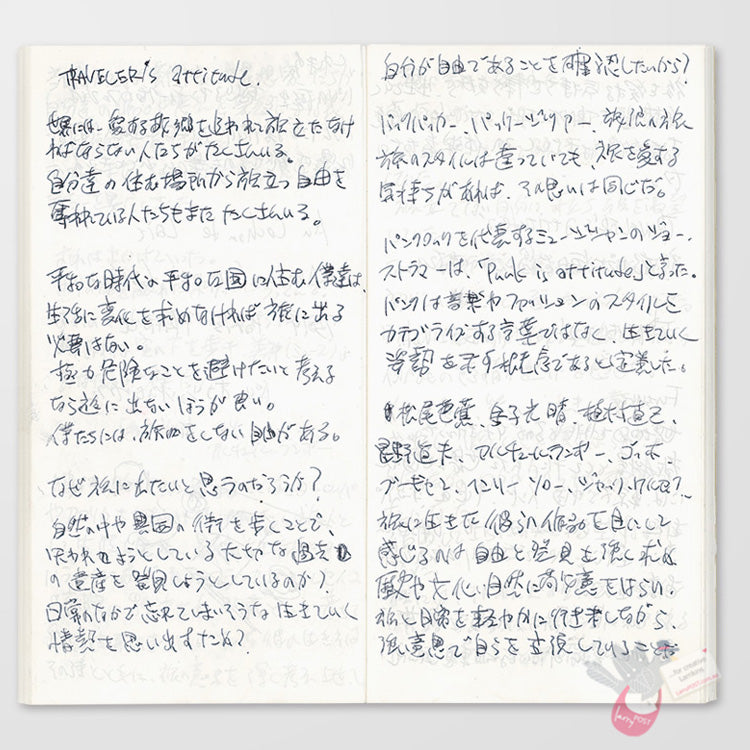 TRAVELER's attitude.
世界には、愛する故郷を追われて旅立たなけ
ればならない人たちがたくさんいる。
自分達の住む場所から旅立つ自由を
奪われている人たちもまた たくさんいる。
平和な時代の平和な国に住む僕達は、
生活に変化を求めなければ旅に出る
必要はない。
極力危険なことを避けたいと考える
なら旅に出ないほうが良い。
僕たちには、旅をしない自由がある。
なぜ旅に出たいと思うのだろうか?
自然の中や異国の街を歩くことで、
失われようとしている大切な過去
の遺産を発見しようとしているのか?
日常のなかで忘れてしまいそうな 生きていく
情熱を思い出すため?
自分が自由であることを確認したいから?
バックパッカー、パッケージツアー、旅
旅のスタイルは違っていても、旅を愛する
気持ちがあれば、その思いは同じだ。
パンクロックを代表するミュージシャンのジョー・
ストラマーは、「Punk is attitude」と言った。
パンクは音楽やファッションのスタイルを
カテゴライズする言葉ではなく、生きていく
姿勢を示す概念であると定義した。
松尾芭蕉、金子光晴、植村直己、
星野道夫、アルチュール・ランボー、ゴッホ、
ゴーギャン、ヘンリー・ソロー、ジャック・ケルアック…
旅に生きた彼らの作品を目にして
感じるのは自由と発見を強く求め
歴史や文化、自然に敬意をはらい、
旅と日常を軽やかに行き来しながら
強い意思で自らを立脚していること
for creative
larrikins
LarryPOST.com.au
larry POST